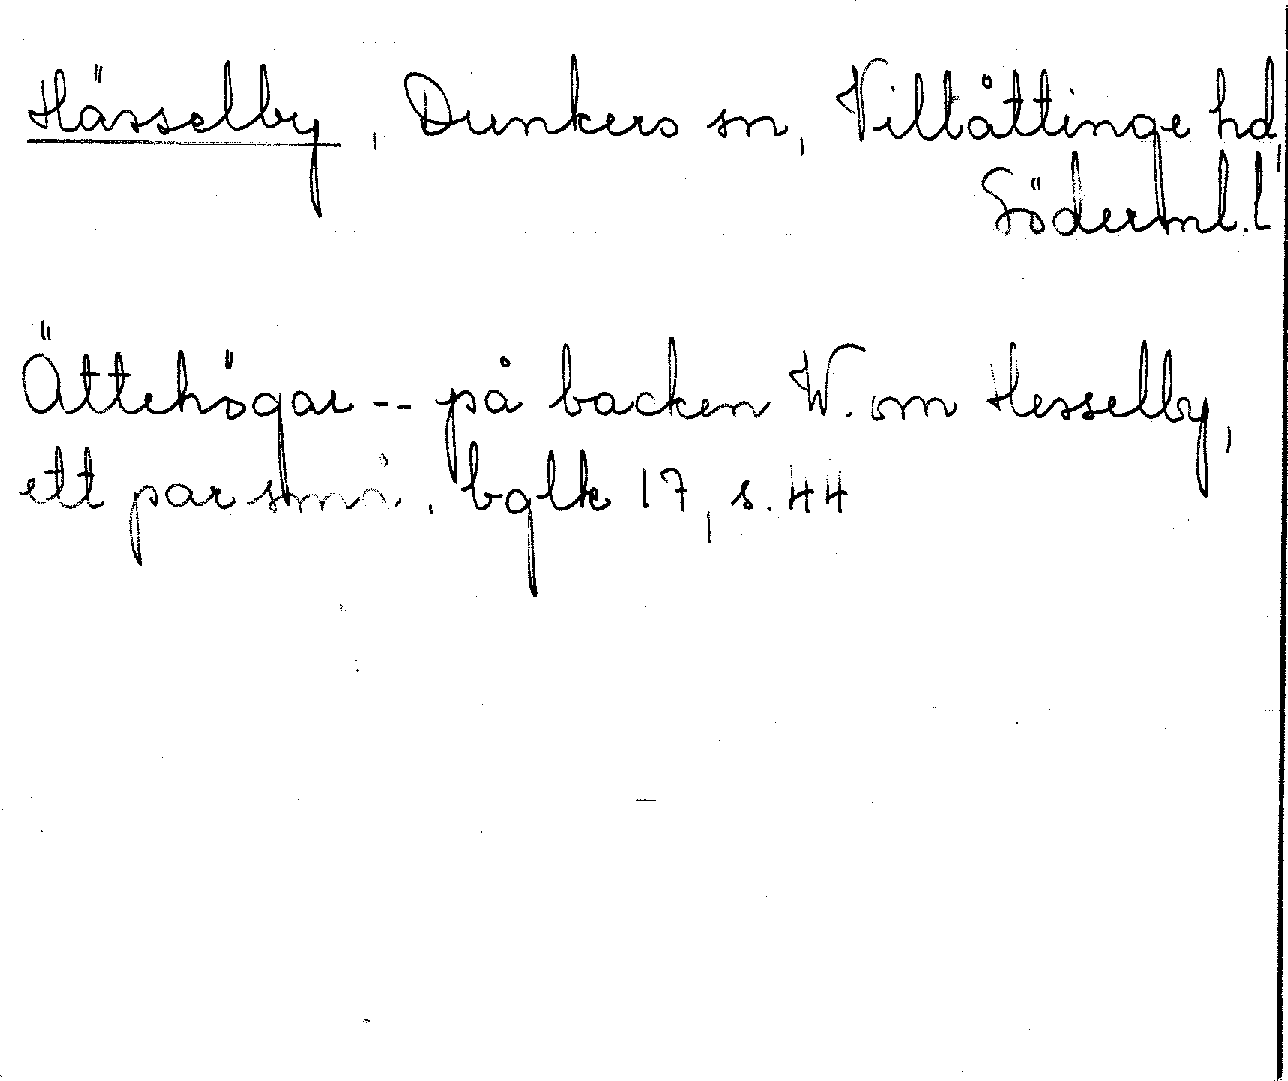 Hässelby, Dunkers sn, Villåttinge hd,
Söderml. l
Ättehögar -- på backen W. om Hesselby,
ett par små. bglk 17, s. 44